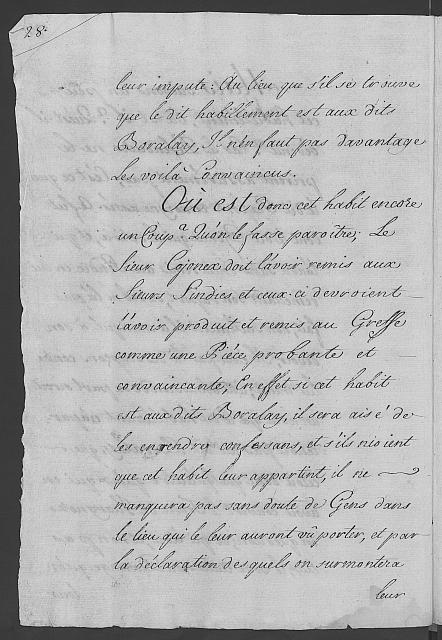 28.
leur impute: Au lieu que s'il se trouve
que le dit habillement est aux dits
Boralay, Il n'en faut pas davantage
Les voilà Convaincus.
Où est donc cet habit encore
un Coup? Qu'on le fasse paroître; Le
Sieur Cojonex doit l'avoir remis aux
Sieurs Sindics et ceux-ci devroient
l'avoir produit et remis au Greffe
comme une Piéce probante et
convaincante; En effet si cet habit
est aux dits Boralay, il sera aisé de
les en rendre confessans, et s'ils nioient
que cet habit leur appartint, il ne
manquera pas sans doute de Gens dans
le lieu qui le leur auront vû porter, et par
la déclaration desquels on surmontera
leur